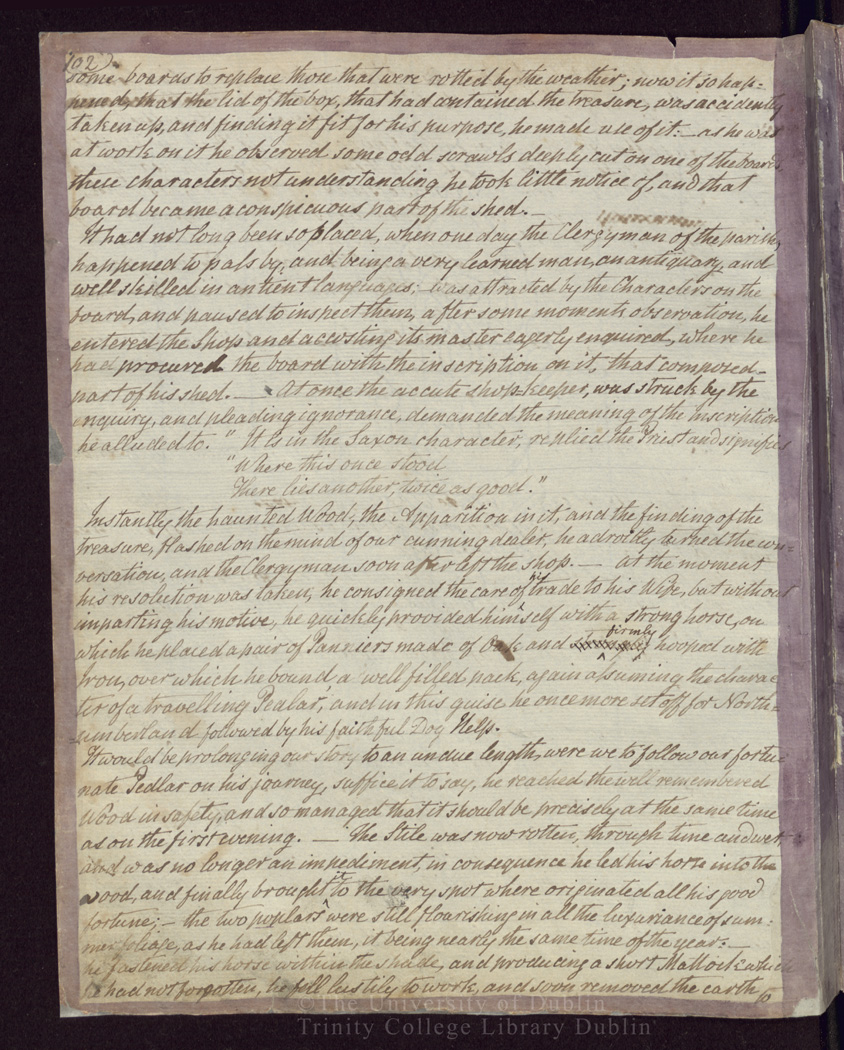 102)
some boards to replace those that were rotted by the weather; now it so hap=
pened, that the lid of the box, that had contained the treasure, was accidently
taken up, and finding it fit for his purpose, he made use of it:— as he was
at work on it he observed some odd scrawls deeply cut on one of the boards,
these characters not understanding he took little notice of, and that
board became a conspicuous part of the shed.—
It had not long been so placed, when one day the Clergyman of the parish,
happened to pass by, and being a very learned man, an antiquary, and
well skilled in antient languages; was attracted by the Characters on the
board, and paused to inspect them, after some moments observation, he
entered the shop and accosting its master eagerly enquired, where he
had procured the board with the inscription on it, that composed
part of his shed. — At once the accute shop-keeper, was struck by the
enquiry, and pleading ignorance, demanded the meaning of the inscription
he alluded to. "It is in the Saxon character, replied the Priest and signifies
"Where this once stood
There lies another, twice as good."
Instantly the haunted Wood, the Apparition in it, and the finding of the
treasure, flashed on the mind of our cunning dealer, he adroitly turned the con=
versation, and the Clergyman soon after left the shop. — at the moment
his resolution was taken, he consigned the care of his trade to his Wife, but without
imparting his motive, he quickly provided himself with a strong horse, on
which he placed a pair of Panniers made of Oak and firmly hooped with
Iron, over which he bound a well filled pack, again assuming the charac=
ter of a travelling Pedlar, and in this guise he once more set off for North=
=umberland followed by his faithful Dog Help.
It would be prolonging our story to an undue length, were we to follow our fortu=
nate Pedlar on his journey, suffice it to say, he reached the well remembered
Wood in safety, and so managed that it should be precisely at the same time
as on the first evening. — The Stile was now rotten, through time and wet,
and was no longer an impediment, in consequence he led his horse into the
wood, and finally brought it to the very spot where originated all his good
fortune;— the two poplars were still flourishing in all the luxuriance of sum=
mer foliage, as he had left them, it being nearly the same time of the year.—
he fastened his horse within the shade, and producing a short Mattock which
he had not forgotten, he fell lustily to work, and soon removed the earth to
©The University of Dublin
Trinity College Library Dublin